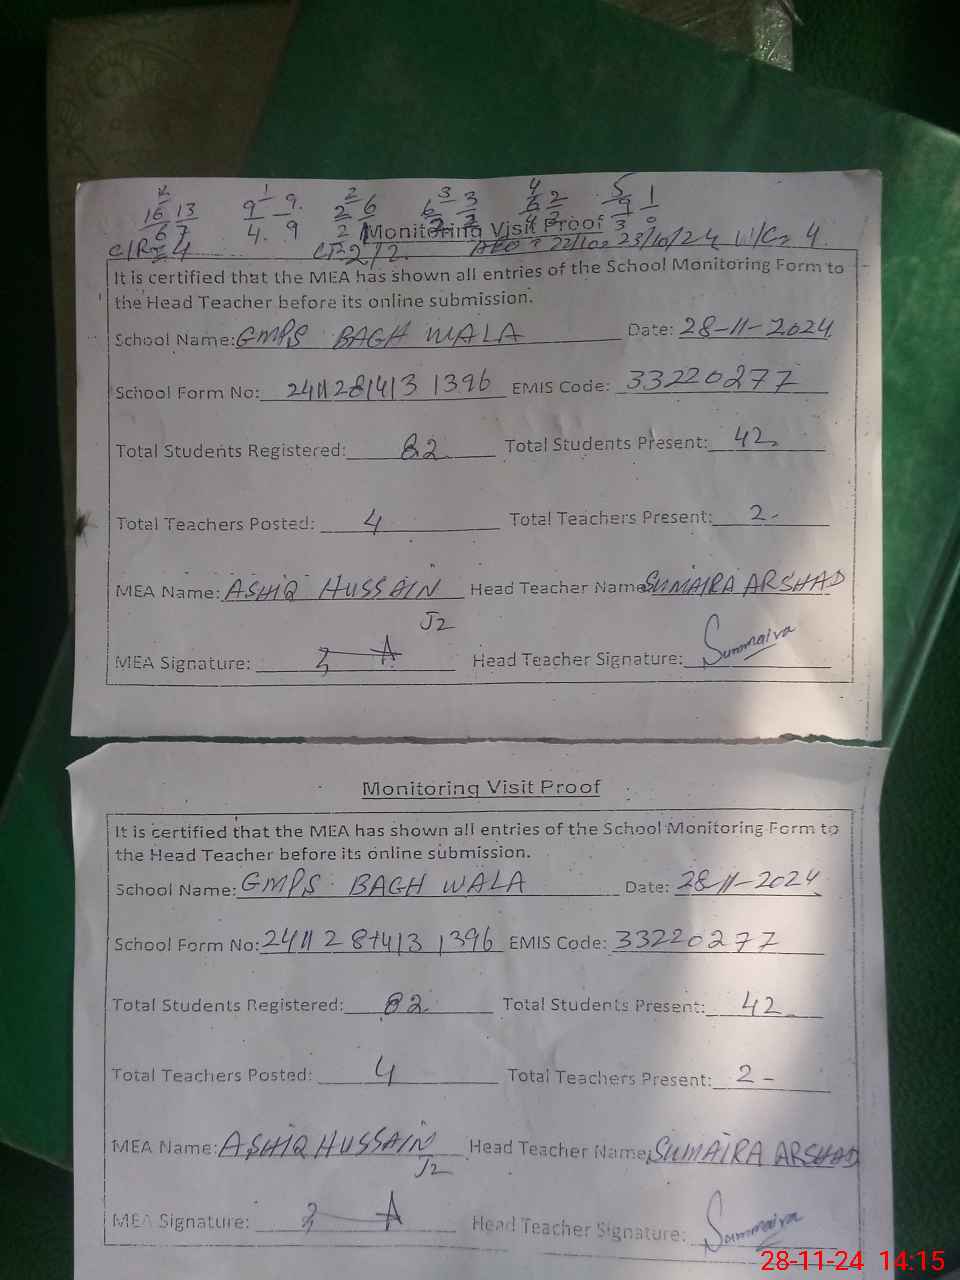 2 1 2 3 4 5
16 13 9 9 2 6 6 3 6 2 9 1
6 7 4. 9 2 1 3 0
Monitoring Visit Proof
C/R= 4 2/2. AEO 22/10= 23/10/24 W/C= 4
It is certified that the MEA has shown all entries of the School Monitoring Form to
the Head Teacher before its online submission.
School Name: GMPS BAGH WALA Date: 28-11-2024
School Form No: 2411281413 1396 EMIS Code: 33220277
Total Students Registered: 82 Total Students Present: 42
Total Teachers Posted: 4 Total Teachers Present: 2-
MEA Name: ASHIQ HUSSAIN Head Teacher Name: SUMAIRA ARSHAD
J2
MEA Signature: Head Teacher Signature: Summaira
Monitoring Visit Proof
It is certified that the MEA has shown all entries of the School Monitoring Form to
the Head Teacher before its online submission.
School Name: GMPS BAGH WALA Date: 28-11-2024
School Form No: 2411281413 1396 EMIS Code: 33220277
Total Students Registered: 82 Total Students Present: 42
Total Teachers Posted: 4 Total Teachers Present: 2-
MEA Name: ASHIQ HUSSAIN Head Teacher Name: SUMAIRA ARSHAD
J2
MEA Signature: Head Teacher Signature: Summaira
28-11-24 14:15